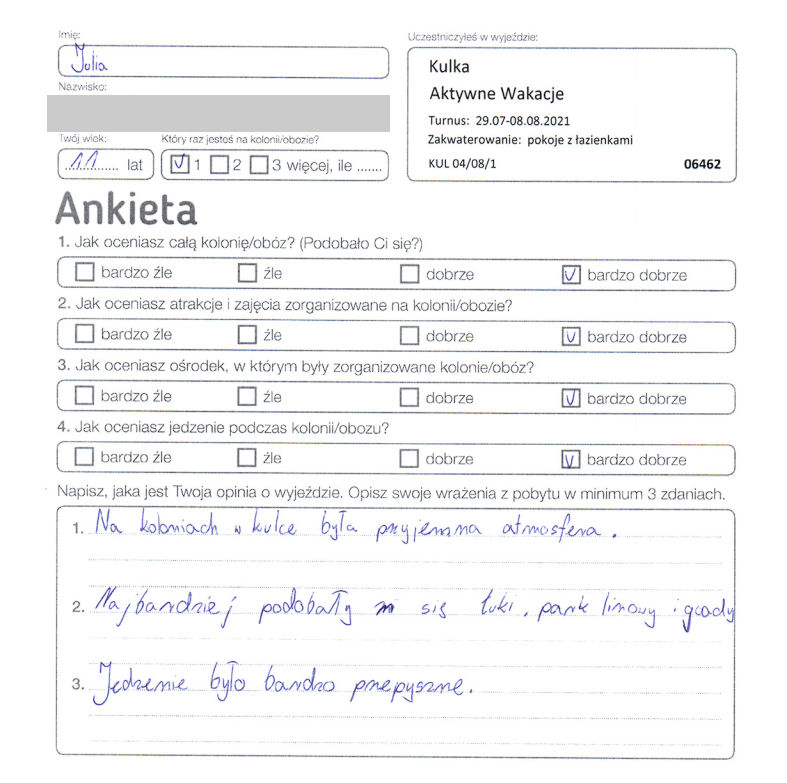 Imię:
Julia
Nazwisko:
Twój wiek:
11 lat
Który raz jesteś na kolonii/obozie?
1 2 3 więcej, ile .......
Uczestniczyłeś w wyjeździe:
Kulka
Aktywne Wakacje
Turnus: 29.07-08.08.2021
Zakwaterowanie: pokoje z łazienkami
KUL 04/08/1 06462
Ankieta
1. Jak oceniasz całą kolonię/obóz? (Podobało Ci się?)
bardzo źle źle dobrze bardzo dobrze
2. Jak oceniasz atrakcje i zajęcia zorganizowane na kolonii/obozie?
bardzo źle źle dobrze bardzo dobrze
3. Jak oceniasz ośrodek, w którym były zorganizowane kolonie/obóz?
bardzo źle źle dobrze bardzo dobrze
4. Jak oceniasz jedzenie podczas kolonii/obozu?
bardzo źle źle dobrze bardzo dobrze
Napisz, jaka jest Twoja opinia o wyjeździe. Opisz swoje wrażenia z pobytu w minimum 3 zdaniach.
1. Na koloniach w kulce była przyjemna atmosfera.
2. Najbardziej podobały się łuki, park linowy i
3. Jedzenie było bardzo przepyszne.